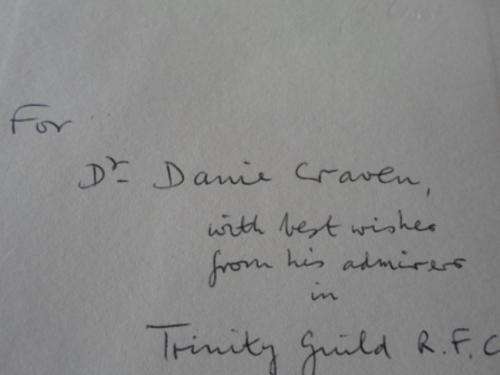 For
Dr Danie Craven,
with best wishes
from his admirers
in
Trinity Guild R.F.C